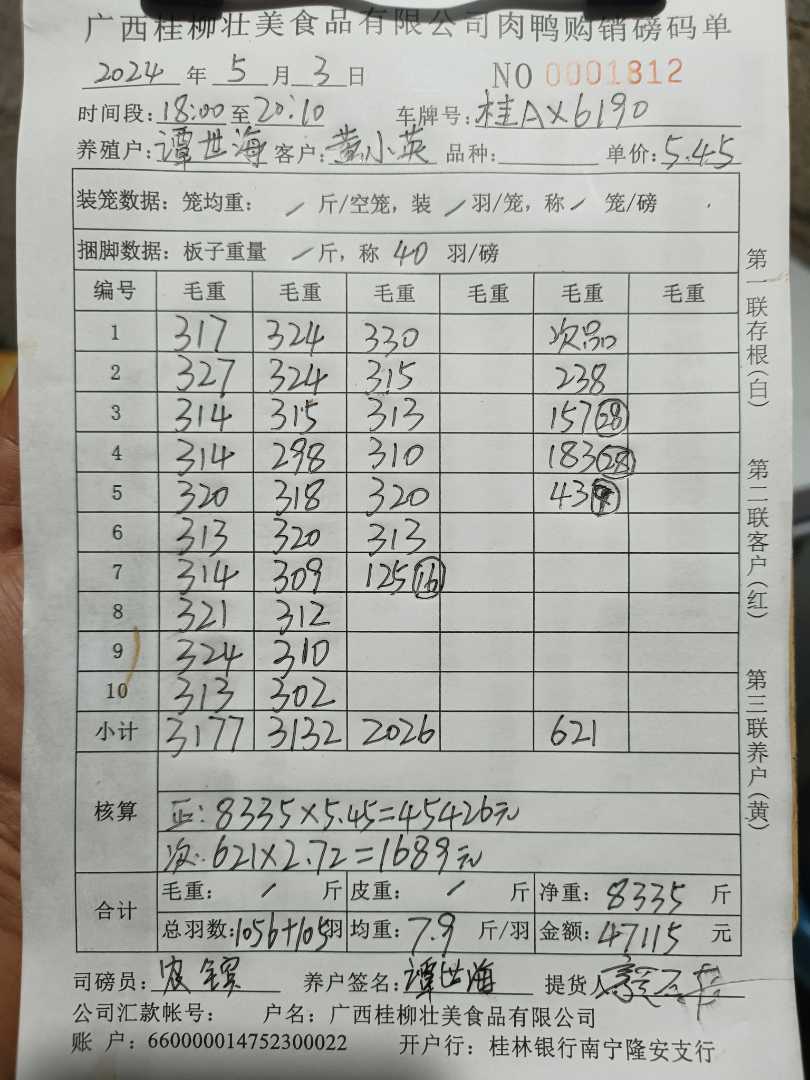 广西桂柳壮美食品有限公司肉鸭购销磅码单
2024 年 5 月 3 日 NO 0001812
时间段: 18:00 至 20:10 车牌号: 桂AX6190
养殖户: 谭世海 客户: 黄小英 品种: 单价: 5.45
装笼数据: 笼均重: / 斤/空笼, 装 / 羽/笼, 称 / 笼/磅
捆脚数据: 板子重量 / 斤, 称 40 羽/磅
编号 毛重 毛重 毛重 毛重 毛重 毛重
1 317 324 330 次品
2 327 324 315 238
3 314 315 313 157 28
4 314 298 310 183 28
5 320 318 320 43 9
6 313 320 313
7 314 309 125 16
8 321 312
9 324 310
10 313 302
小计 3177 3132 2026 621
核算
正: 8335×5.45=45426元
次: 621×2.72=1689元
合计
毛重: / 斤 皮重: / 斤 净重: 8335 斤
总羽数: 1056+105羽 均重: 7.9 斤/羽 金额: 47115 元
司磅员: 养户签名: 谭世海 提货人
公司汇款帐号: 户名: 广西桂柳壮美食品有限公司
账 户: 660000014752300022 开户行: 桂林银行南宁隆安支行
第一联存根(白)
第二联客户(红)
第三联养户(黄)